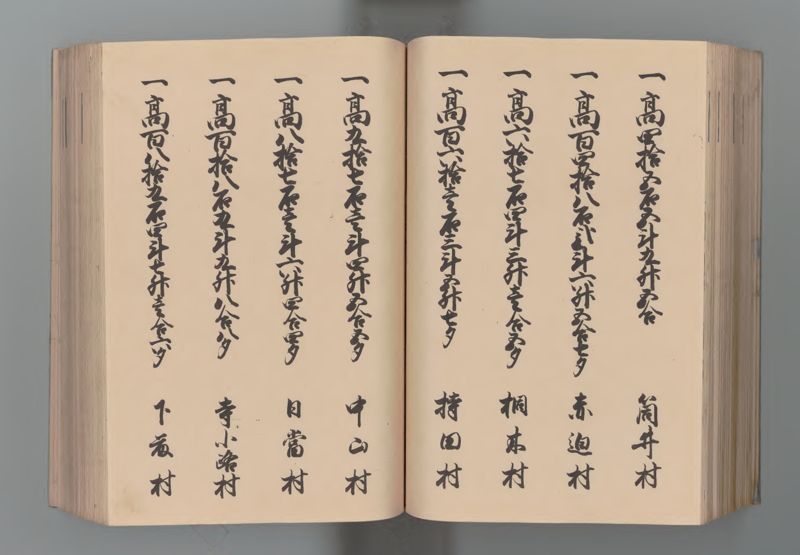 一高四拾五石五斗九升五合 筒井村
一高百四拾八石弐斗六升五合七夕 赤迫村
一高六拾七石四斗三升壱合五夕 桐木村
一高百六拾壱石三斗五升七夕 持田村
一高九拾七石壱斗四升五合五夕 中山村
一高八拾七石壱斗六升四合四夕 日當村
一高百拾八石九斗九升八合八夕 寺小路村
一高百八拾九石四斗七升壱合六夕 下莈村